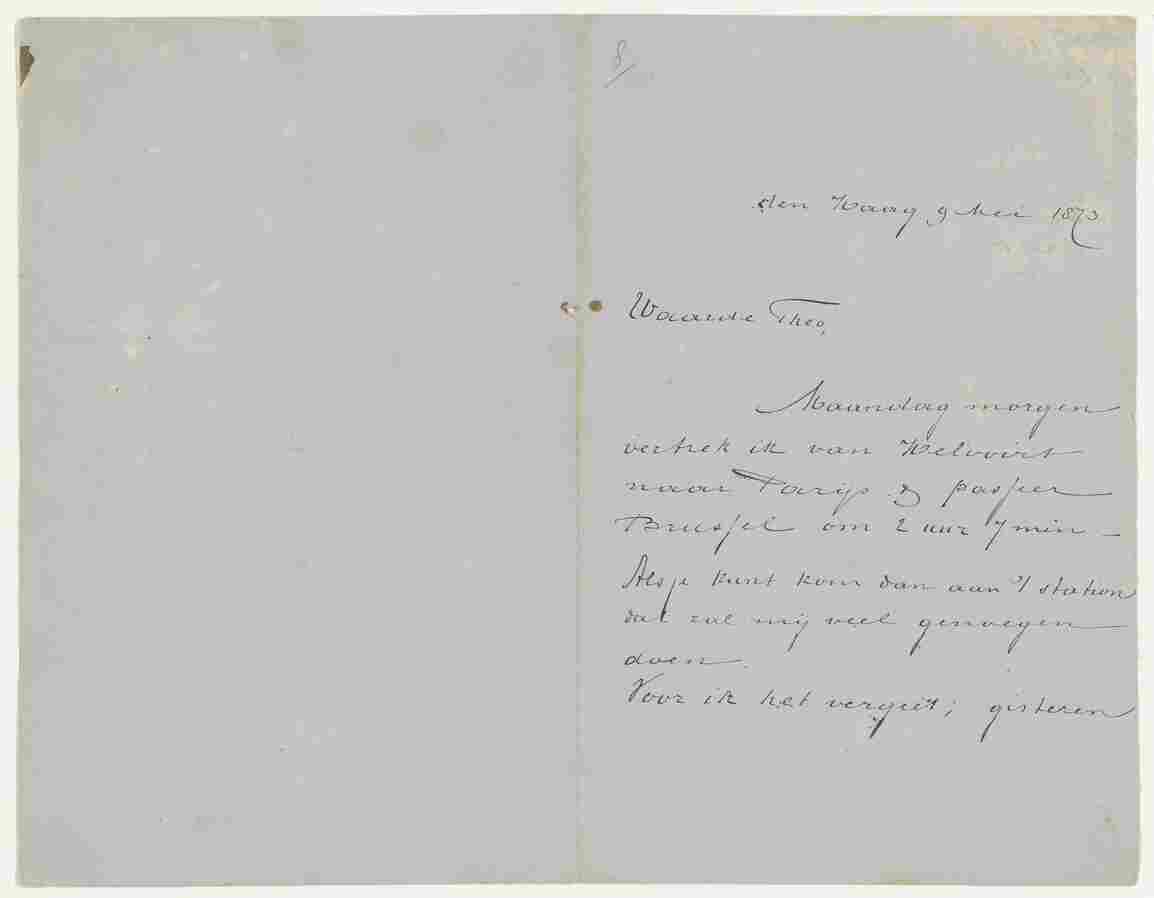 8
den Haag 9 Mei 1873
Waarde Theo,
Maandag morgen
vertrek ik van Helvoirt
naar Parijs & passeer
Brussel om 2 uur 7 min –
Als je kunt kom dan aan 't station
dat zal mij veel genoegen
doen.
Voor ik het vergeet; gisteren